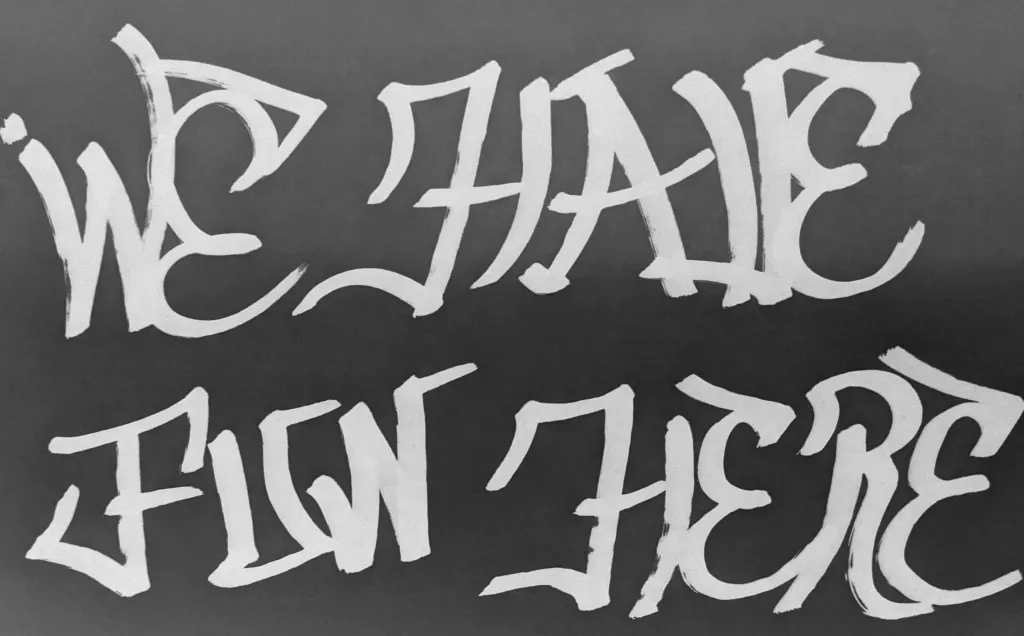 WE HAVE
FUN HERE